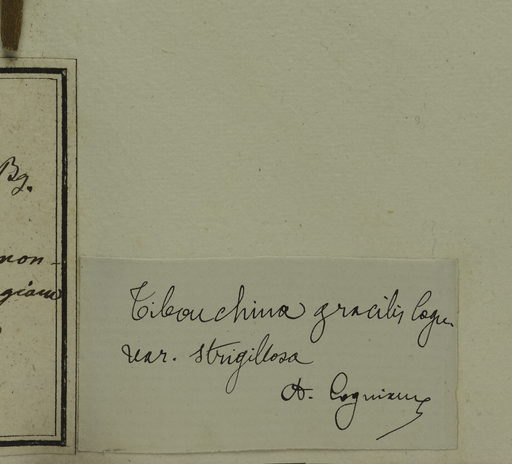 Bg.
non-
Tibouchina gracilis Cogn.
var. strigillosa
A. Cogniaux